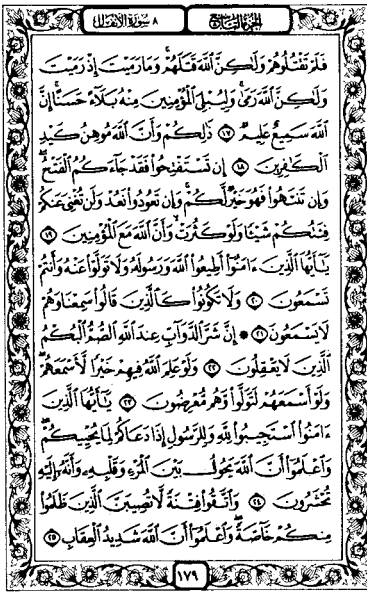 الجزء التاسع
٨ سورة الأنفال
فَلَمْ تَقْتُلُوهُمْ وَلَٰكِنَّ ٱللَّهَ قَتَلَهُمْ وَمَا رَمَيْتَ إِذْ رَمَيْتَ
وَلَٰكِنَّ ٱللَّهَ رَمَىٰ وَلِيُبْلِيَ ٱلْمُؤْمِنِينَ مِنْهُ بَلَآءً حَسَنًا إِنَّ
ٱللَّهَ سَمِيعٌ عَلِيمٌ ١٧ ذَٰلِكُمْ وَأَنَّ ٱللَّهَ مُوهِنُ كَيْدِ
ٱلْكَٰفِرِينَ ١٨ إِن تَسْتَفْتِحُوا۟ فَقَدْ جَآءَكُمُ ٱلْفَتْحُ
وَإِن تَنتَهُوا۟ فَهُوَ خَيْرٌ لَّكُمْ وَإِن تَعُودُوا۟ نَعُدْ وَلَن تُغْنِيَ عَنكُمْ
فِئَتُكُمْ شَيْـًٔا وَلَوْ كَثُرَتْ وَأَنَّ ٱللَّهَ مَعَ ٱلْمُؤْمِنِينَ ١٩
يَٰٓأَيُّهَا ٱلَّذِينَ ءَامَنُوٓا۟ أَطِيعُوا۟ ٱللَّهَ وَرَسُولَهُۥ وَلَا تَوَلَّوْا۟ عَنْهُ وَأَنتُمْ
تَسْمَعُونَ ٢٠ وَلَا تَكُونُوا۟ كَٱلَّذِينَ قَالُوا۟ سَمِعْنَا وَهُمْ
لَا يَسْمَعُونَ ٢١ ۞ إِنَّ شَرَّ ٱلدَّوَآبِّ عِندَ ٱللَّهِ ٱلصُّمُّ ٱلْبُكْمُ
ٱلَّذِينَ لَا يَعْقِلُونَ ٢٢ وَلَوْ عَلِمَ ٱللَّهُ فِيهِمْ خَيْرًا لَّأَسْمَعَهُمْ
وَلَوْ أَسْمَعَهُمْ لَتَوَلَّوا۟ وَّهُم مُّعْرِضُونَ ٢٣ يَٰٓأَيُّهَا ٱلَّذِينَ
ءَامَنُوا۟ ٱسْتَجِيبُوا۟ لِلَّهِ وَلِلرَّسُولِ إِذَا دَعَاكُمْ لِمَا يُحْيِيكُمْ
وَٱعْلَمُوٓا۟ أَنَّ ٱللَّهَ يَحُولُ بَيْنَ ٱلْمَرْءِ وَقَلْبِهِۦ وَأَنَّهُۥٓ إِلَيْهِ
تُحْشَرُونَ ٢٤ وَٱتَّقُوا۟ فِتْنَةً لَّا تُصِيبَنَّ ٱلَّذِينَ ظَلَمُوا۟
مِنكُمْ خَآصَّةً وَٱعْلَمُوٓا۟ أَنَّ ٱللَّهَ شَدِيدُ ٱلْعِقَابِ ٢٥
١٧٩